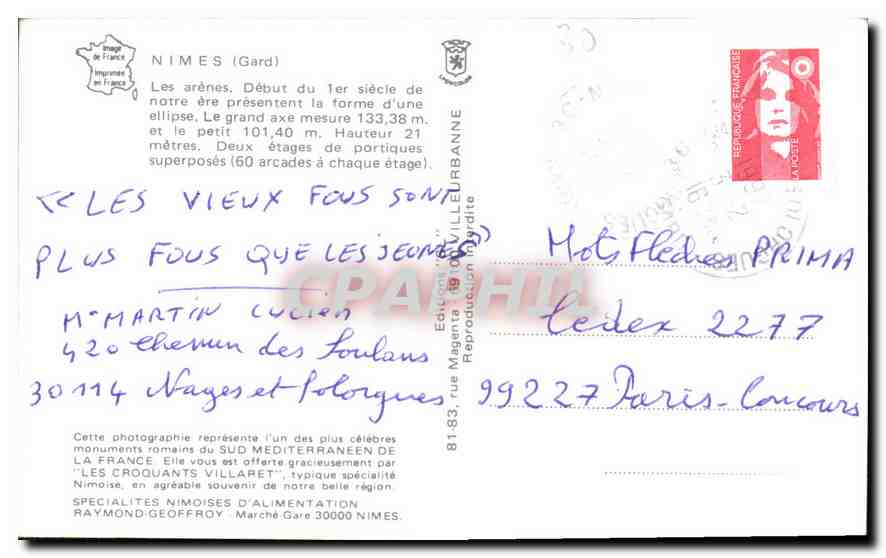 Image
de France
Imprimée
en France
NIMES (Gard)
Les arènes. Début du 1er siècle de
notre ère présentent la forme d'une
ellipse. Le grand axe mesure 133,38 m.
et le petit 101,40 m. Hauteur 21
mètres. Deux étages de portiques
superposés (60 arcades à chaque étage).
<< LES VIEUX FOUS SONT
PLUS FOUS QUE LES JEUNES >>
Mr MARTIN Lucien
420 Chemin des Soulans
30114 Nages et Solorgues
Cette photographie représente l'un des plus célèbres
monuments romains du SUD MEDITERRANEEN DE
LA FRANCE. Elle vous est offerte gracieusement par
"LES CROQUANTS VILLARET", typique spécialité
Nimoise, en agréable souvenir de notre belle région.
SPECIALITES NIMOISES D'ALIMENTATION
RAYMOND-GEOFFROY - Marché Gare 30000 NIMES.
Editions
81-83, rue Magenta 69100 VILLEURBANNE
Reproduction interdite
CPAPHIL
30
RÉPUBLIQUE FRANÇAISE
LA POSTE
Mots Fléchés PRIMA
Cedex 2277
99227 Paris-Concours